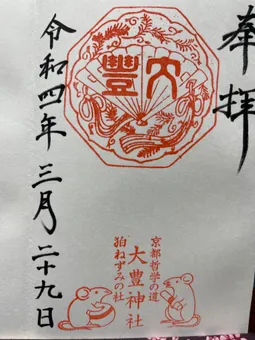 奉拝
大豐
京都哲学の道
大豊神社
狛ねずみの社
令和四年三月二十九日